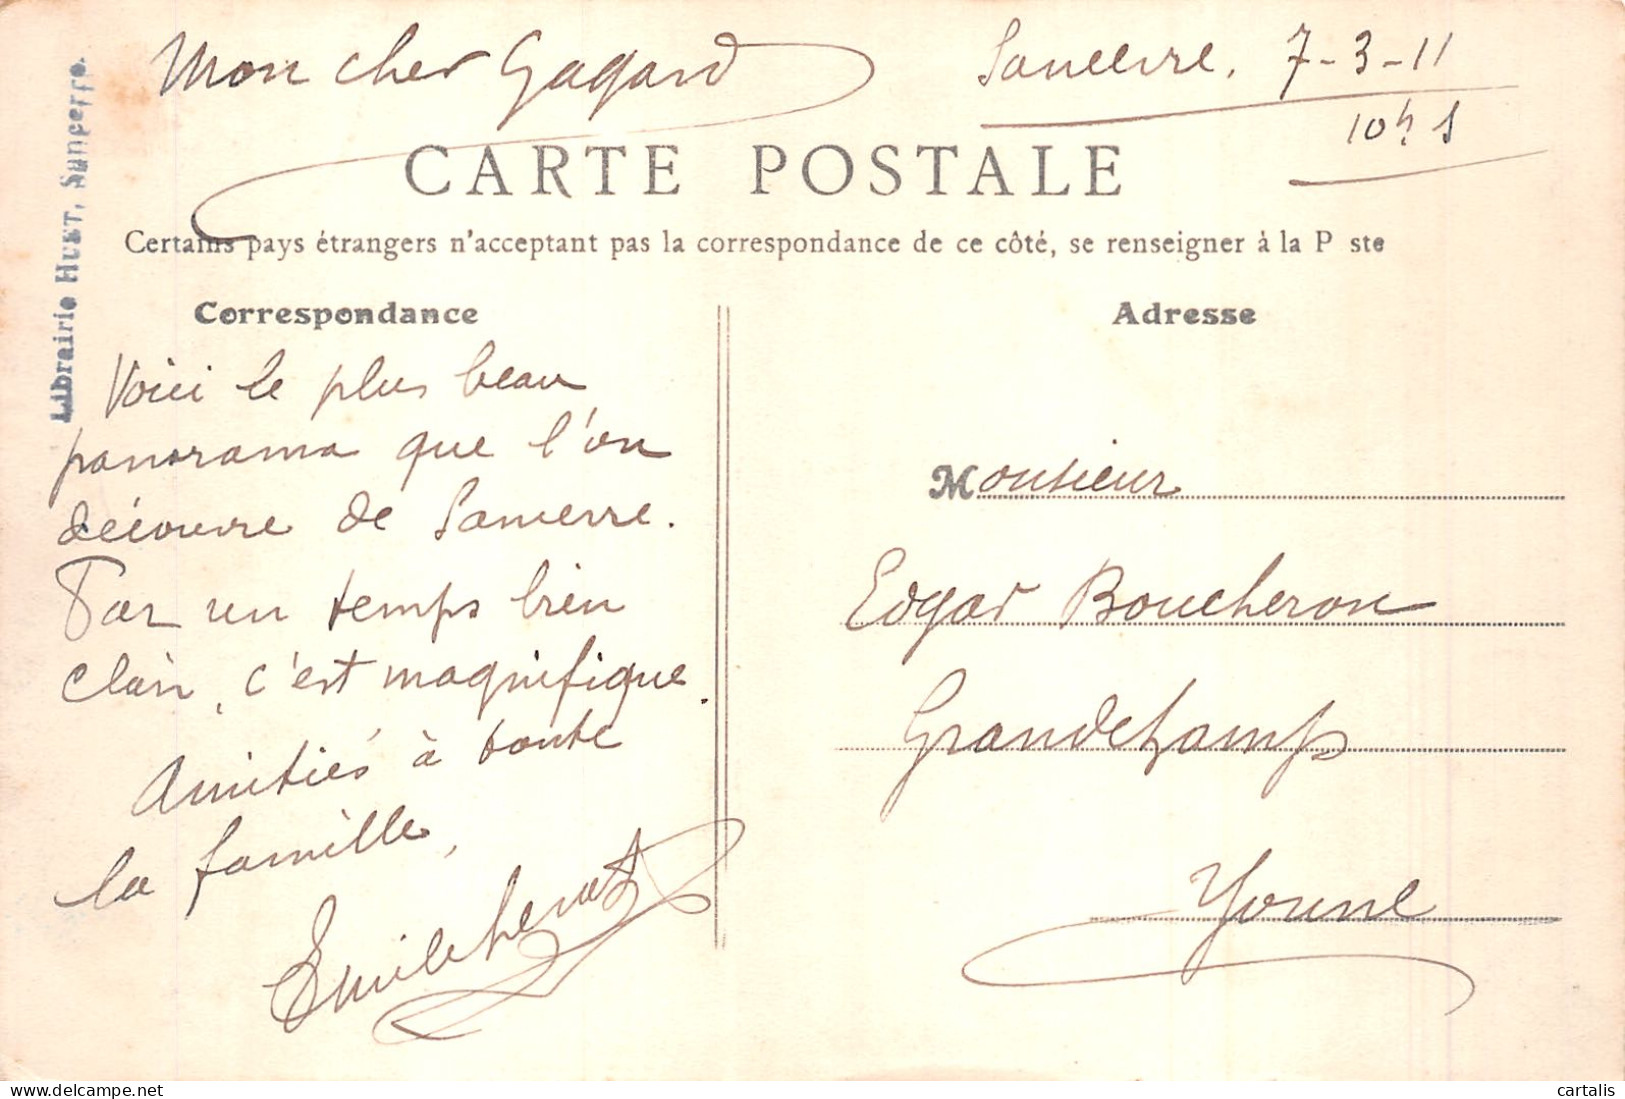 Mon cher Gagard
Sancerre, 7-3-11
10h S
CARTE POSTALE
Certains pays étrangers n'acceptent pas la correspondance de ce côté, se renseigner à la P ste
Librairie HUET, Sancerre.
Correspondance
Voici le plus beau
panorama que l'on
découvre de Sancerre.
Par un temps bien
clair, c'est magnifique.
Amitiés à toute
la famille,
Emile
Adresse
Monsieur
Edgar Boucheron
Grandchamps
Yonne
cartalis